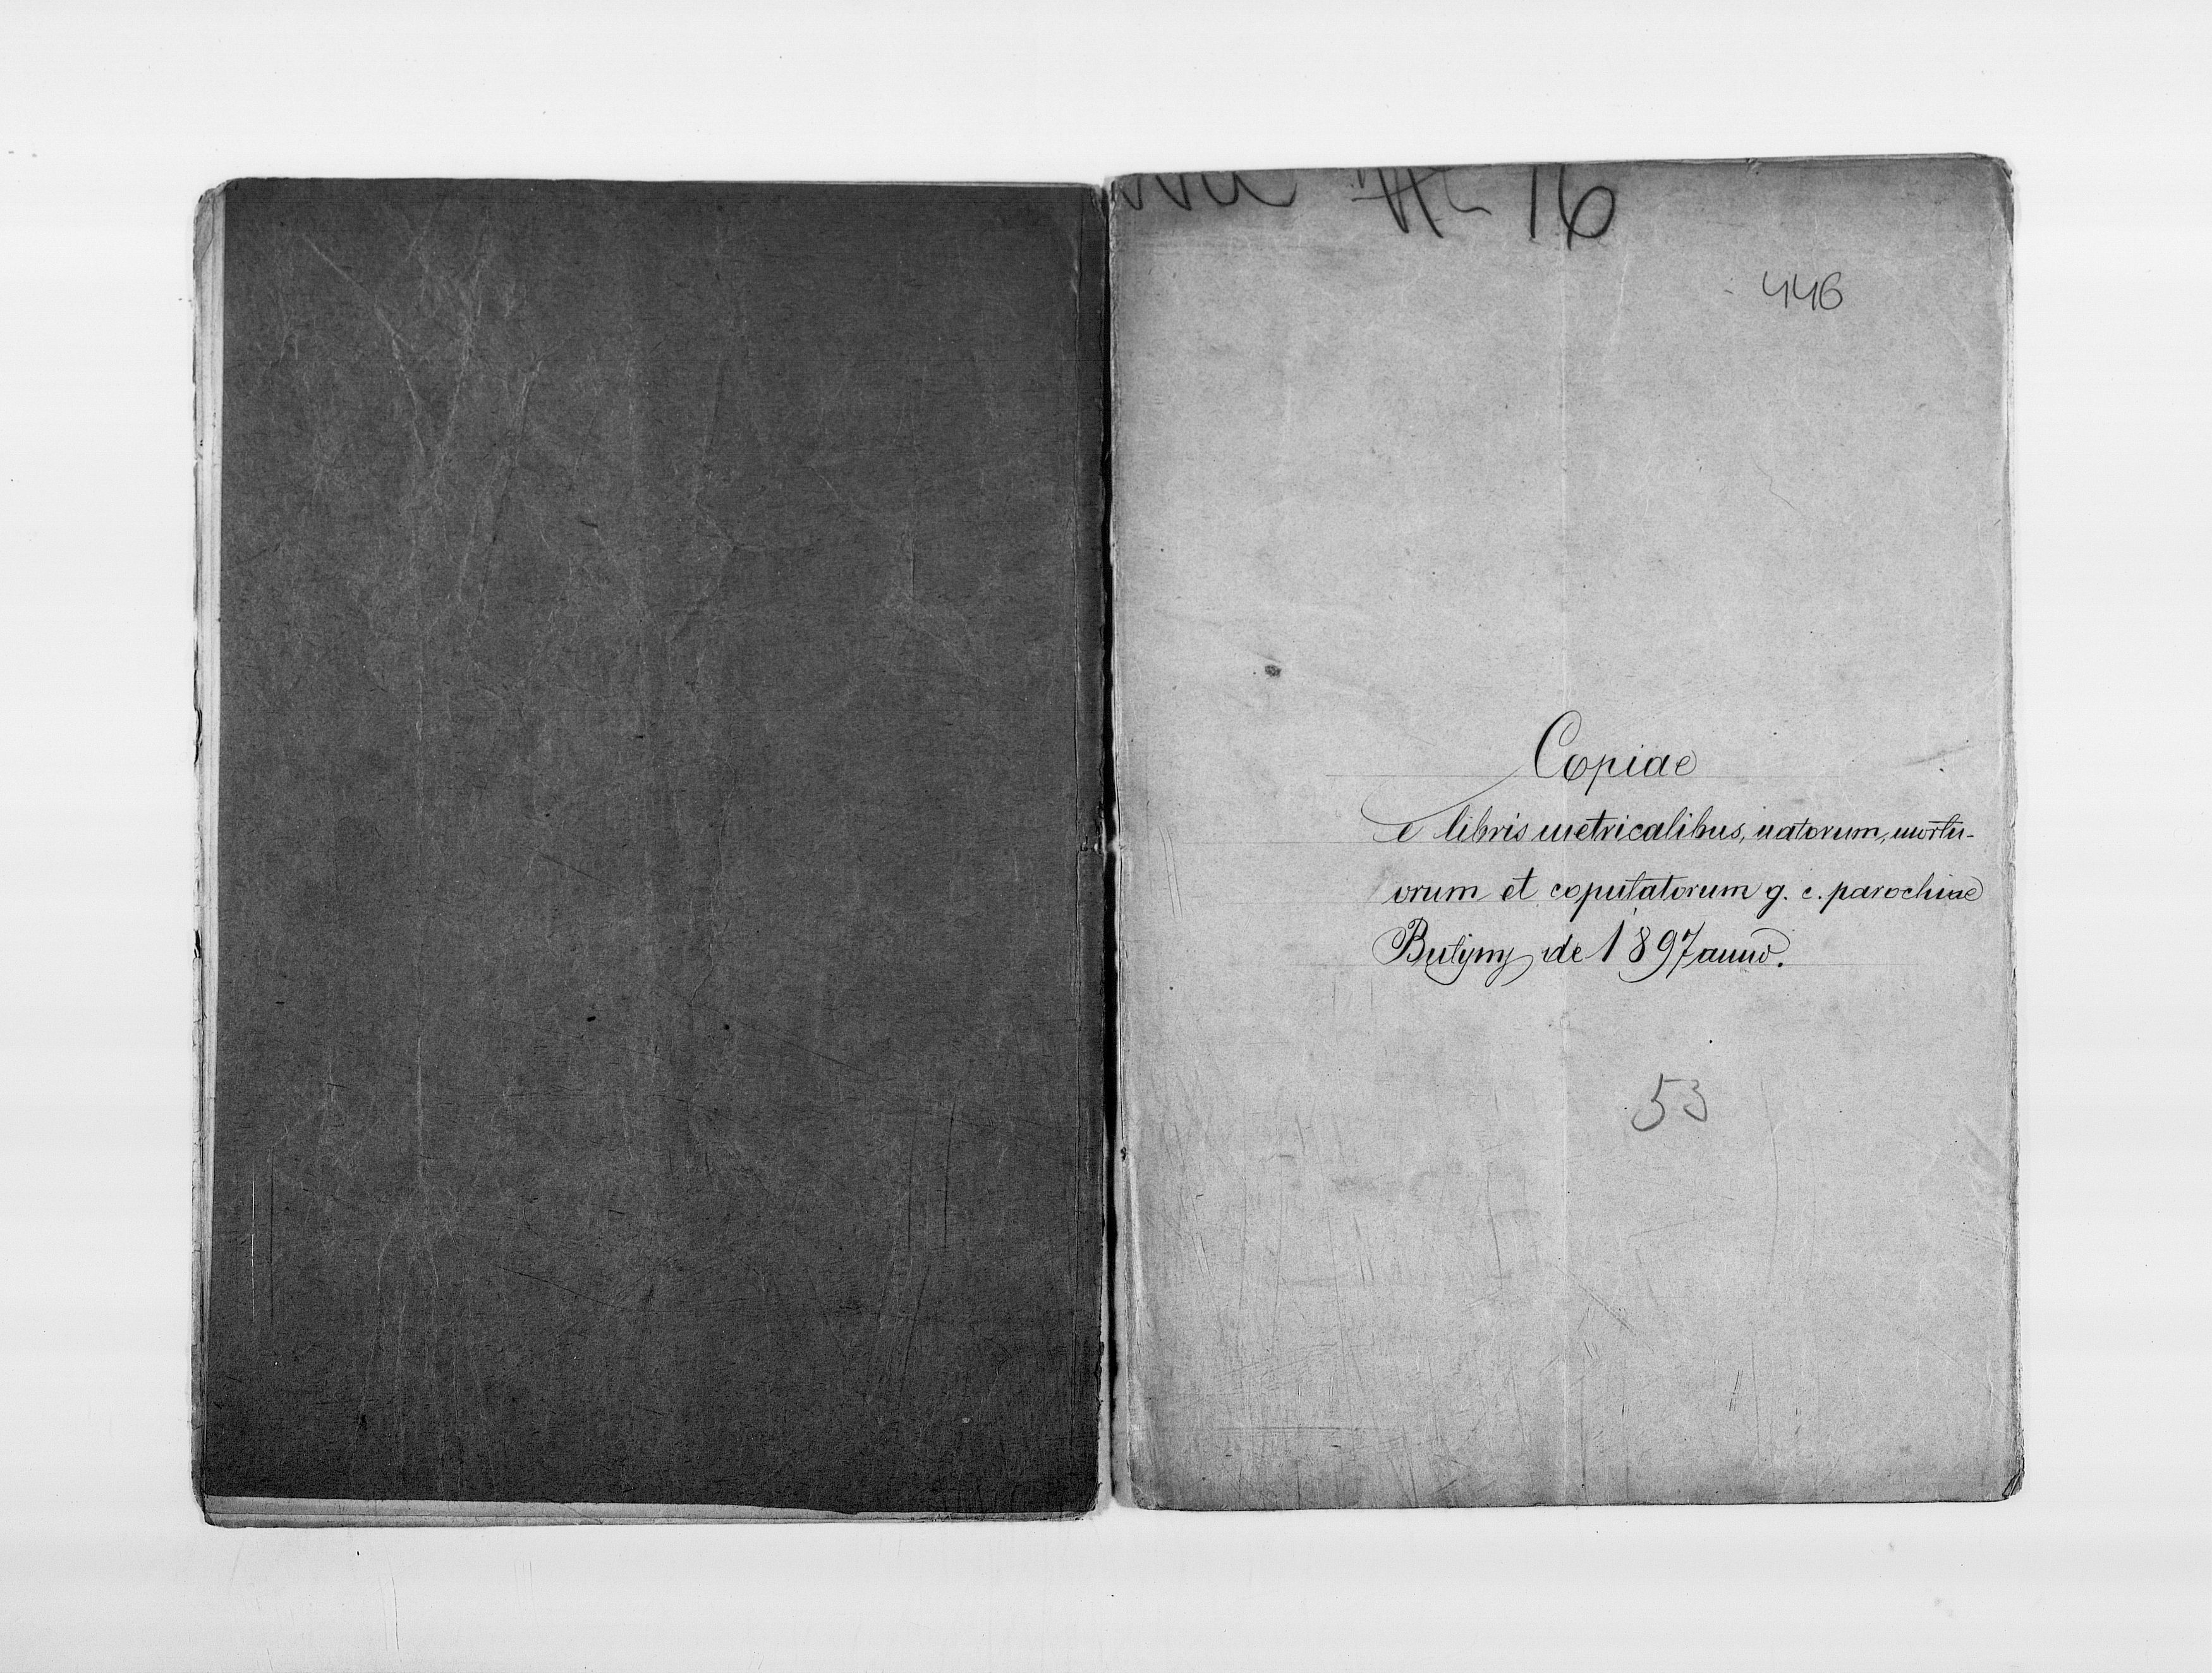 № 16
446
Copiae
e libris metricalibus, natorum, mortu-
orum et copulatorum g. c. parochiae
Butyny de 1897 anno.
53